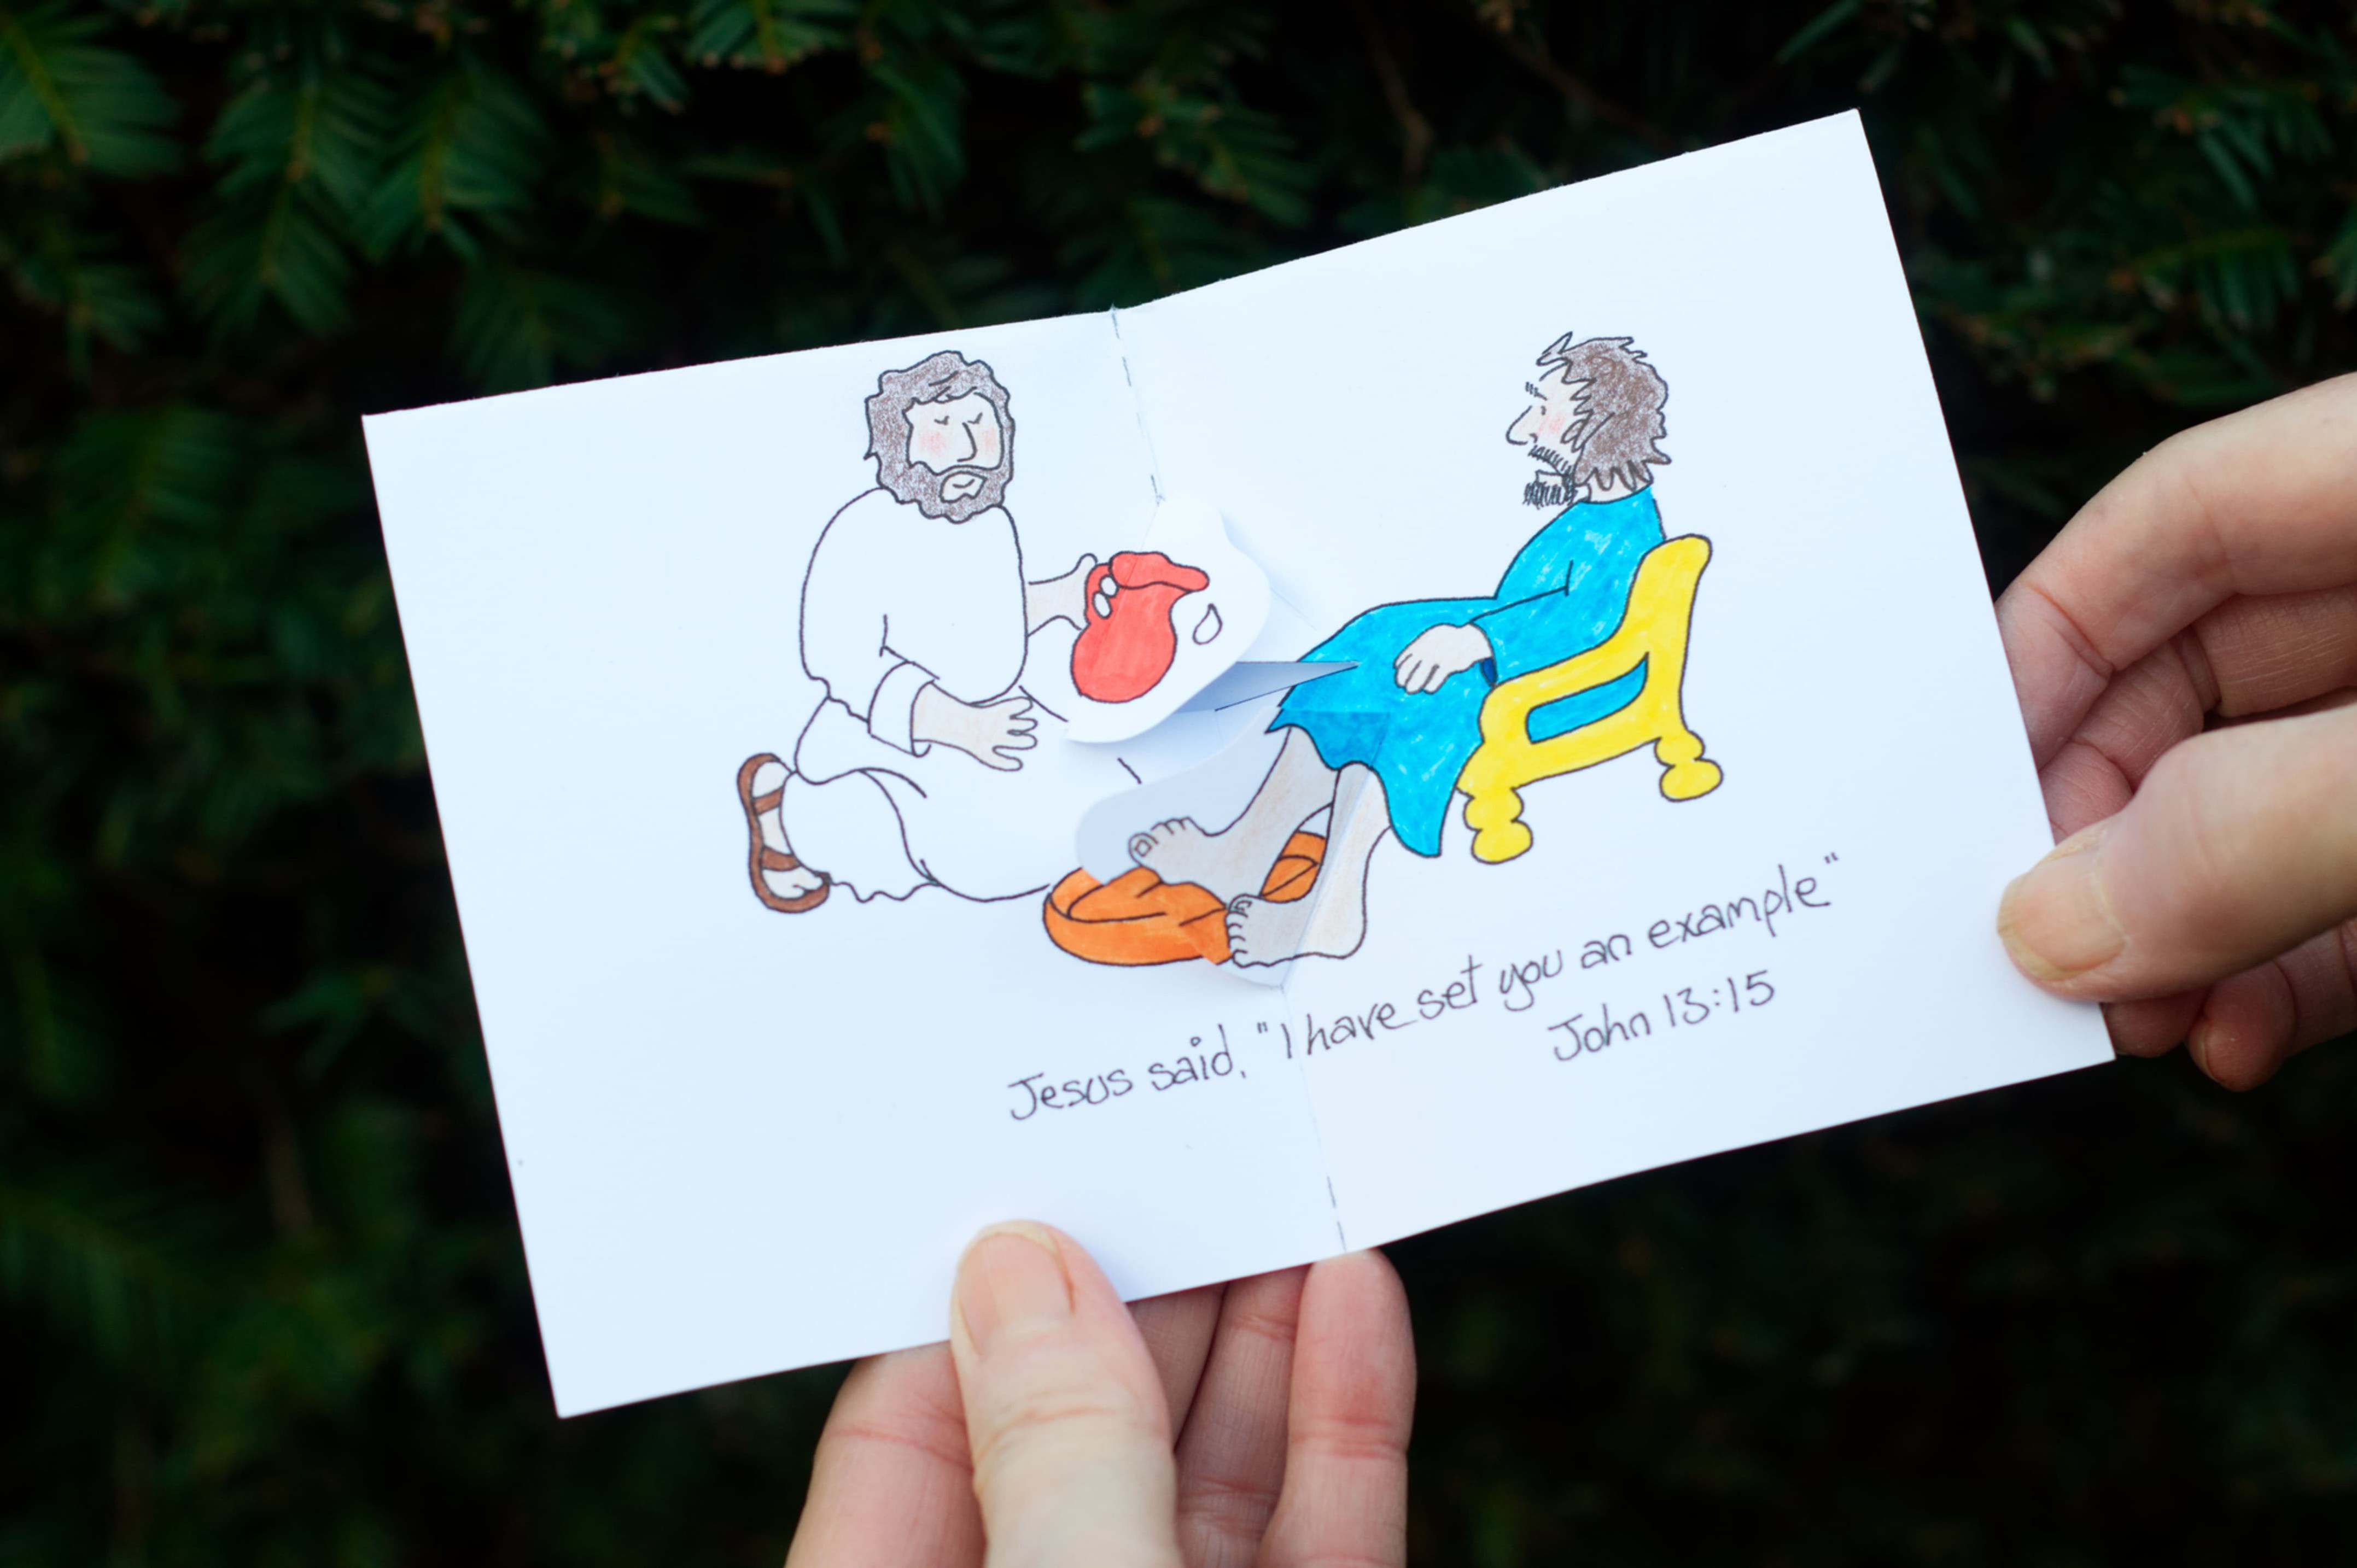 Jesus said, "I have set you an example"
John 13:15